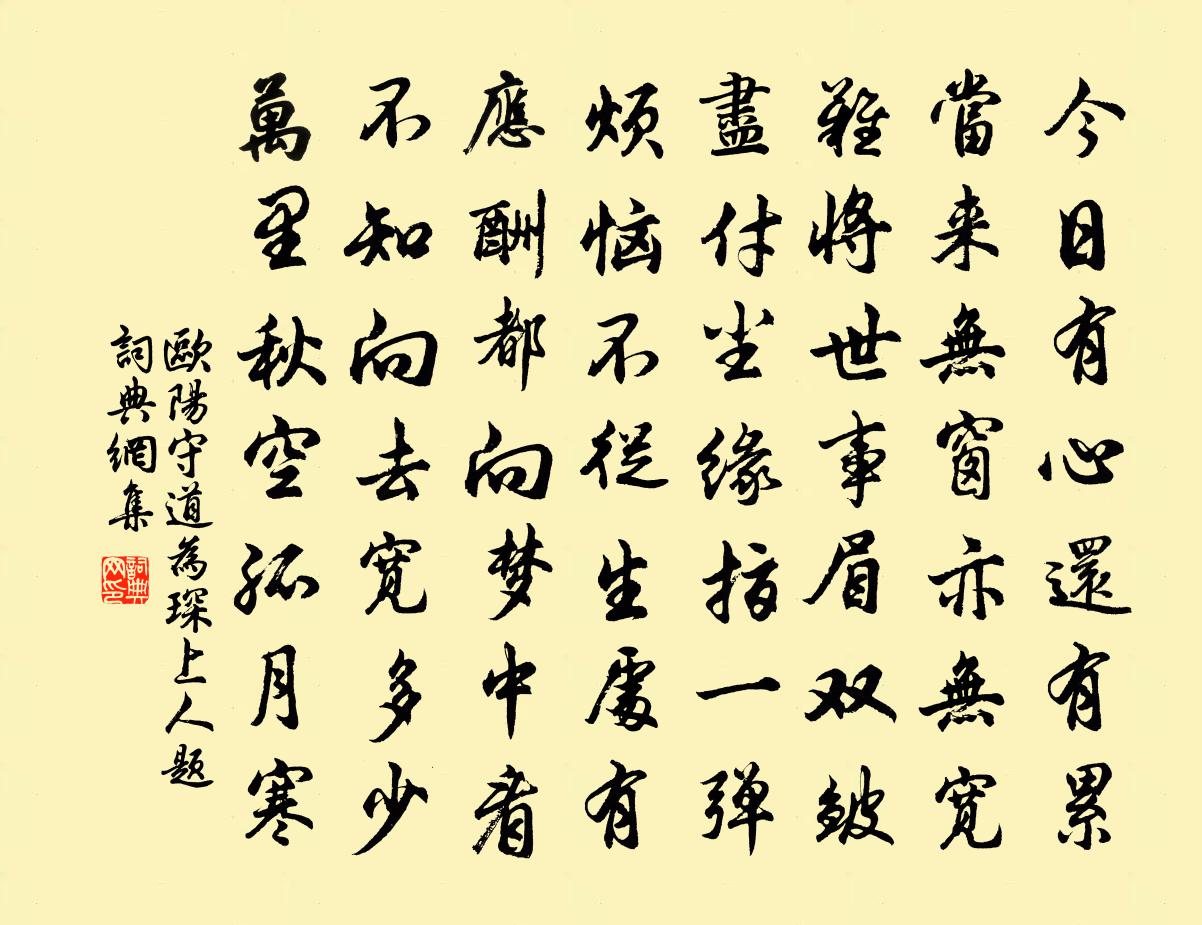 今日有心還有累
當来無窗亦無寬
難將世事眉双皴
盡付尘緣指一彈
烦恼不從生處有
應酬都向梦中看
不知向去寬多少
萬里秋空孤月寒
歐陽守道為琛上人题
詞典網集
詞典网印